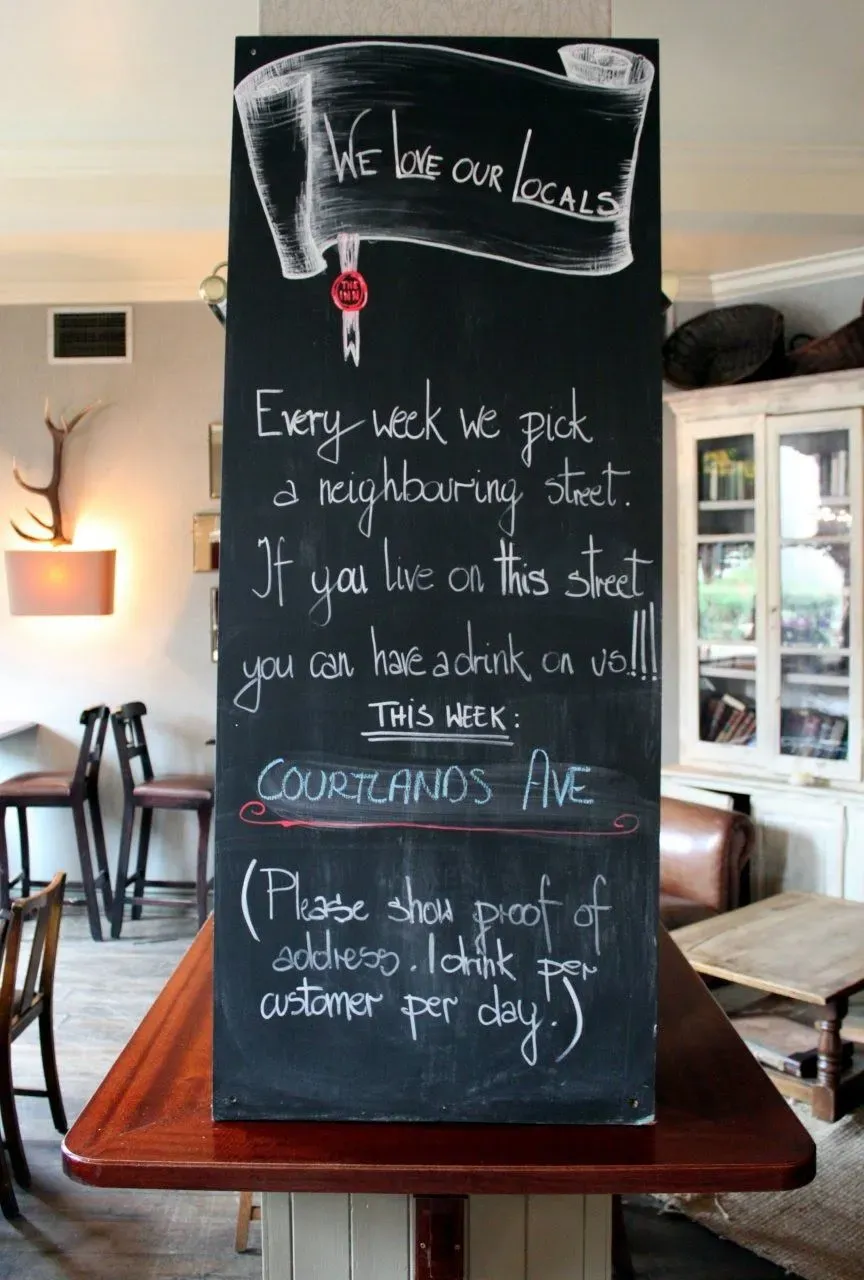 WE LOVE OUR LOCALS
THE
INN
Every week we pick
a neighbouring street.
If you live on this street
you can have a drink on us!!!
THIS WEEK:
COURTLANDS AVE
(Please show proof of
address. 1 drink per
customer per day.)